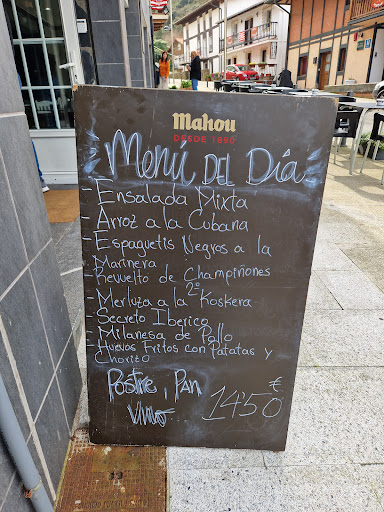 Mahou
DESDE 1890
Menú DEL Día
- Ensalada Mixta
- Arroz a la Cubana
- Espaguetis Negros a la
Marinera
Revuelto de Champiñones
2º
- Merluza a la Koskera
- Secreto Iberico
- Milanesa de Pollo
- Huevos Fritos con Patatas y
Chorizo
Postre, Pan
Vino
14'50 €